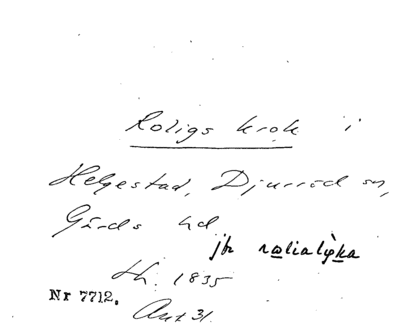 Roligs krok i
Helgestad, Djurröd sn,
Gärds hd
jfr rolialykka
1835
Nr 7712.
31.